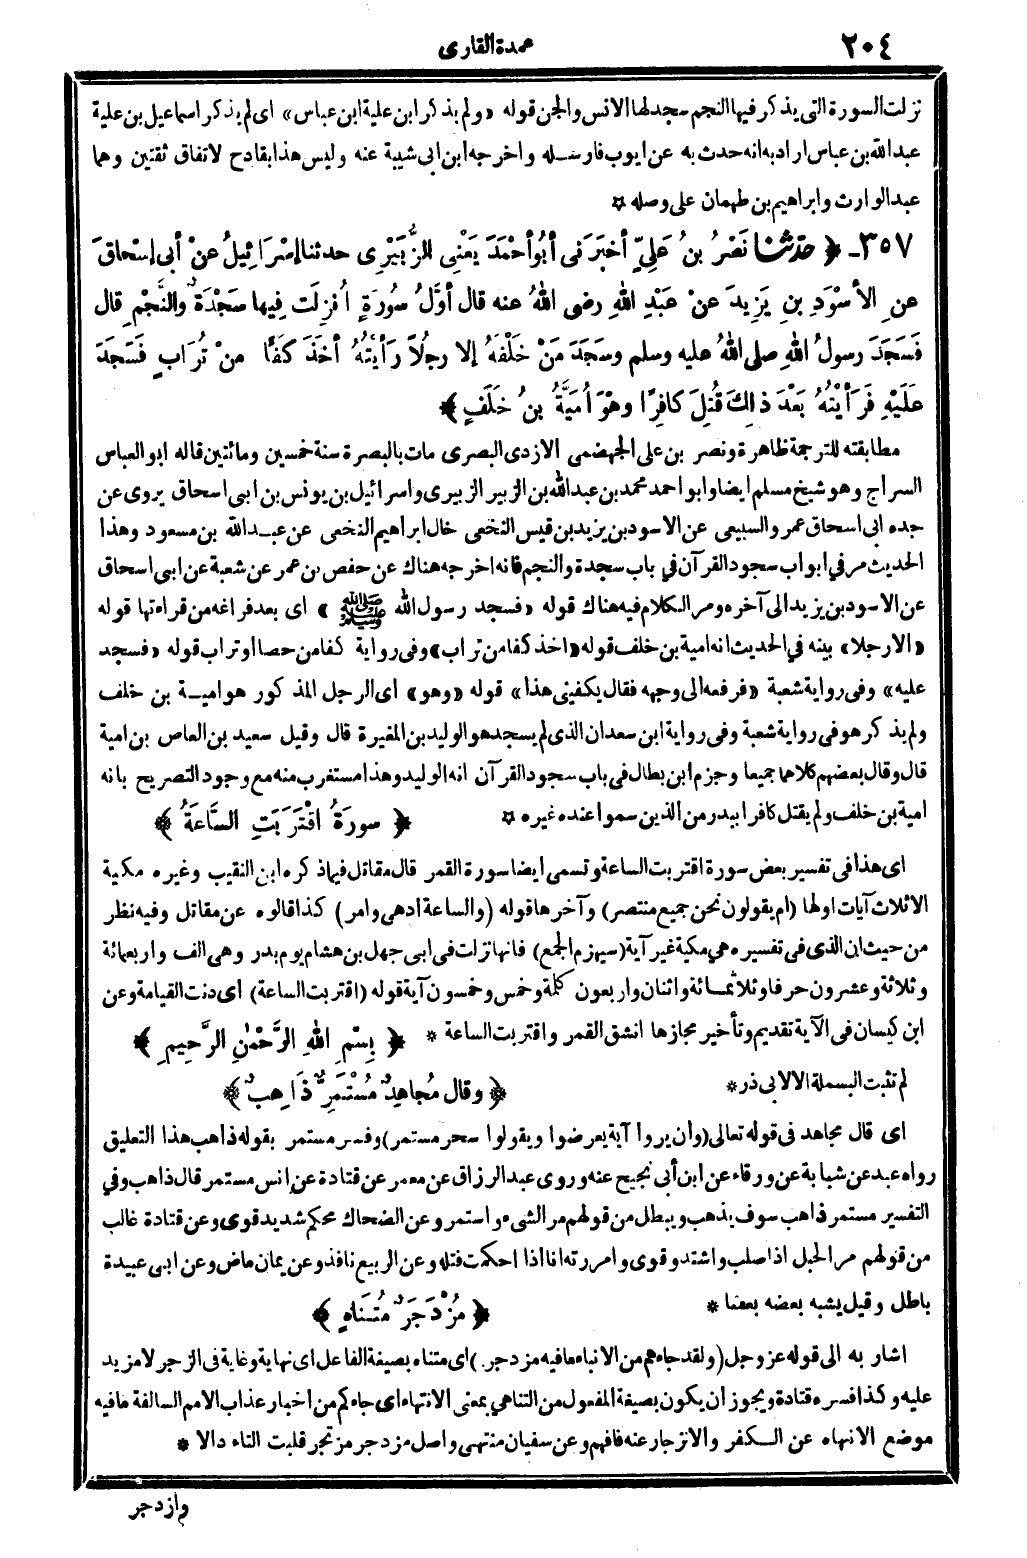 ٢٠٤
عمدة القارى
نزلت السورة التى يذكر فيها النجم سجد لها الانس والجن قوله «ولم يذكر ابن علية ابن عباس» اى لم يذكر اسماعيل بن علية
عبد الله بن عباس اراد به انه حدث به عن ايوب فارسله واخرجه ابن ابى شيبة عنه وليس هذا بقادح لاتفاق ثقتين وهما
عبد الوارث وابراهيم بن طهمان على وصله ☆
٣٥٧ـ ﴿ حَدَّثَنَا نَصْرُ بنُ عَلِيٍّ أخْبَرَنى أبُو أحْمَدَ يَعْنِى الزُّبَيْرِى حدثنا إسْرَائِيلُ عنْ أبى إسْحاقَ
عنِ الأسْوَدِ بنِ يَزِيدَ عنْ عَبْدِ اللهِ رضى اللهُ عنه قال أوَّلُ سُورَةٍ أُنْزِلَتْ فِيها سَجْدَةٌ والنَّجْمِ قال
فَسَجَدَ رسولُ اللهِ صلى اللهُ عليه وسلم وسَجَدَ مَنْ خَلْفَهُ إلا رجُلاً رَأيْتُهُ أخَذَ كَفًّا منْ تُرَابٍ فَسَجَدَ
عَلَيْهِ فَرَأيْتُهُ بَعْدَ ذالِكَ قُتِلَ كافِرًا وهْوَ أُمَيَّةُ بنُ خَلَفٍ ﴾
مطابقته للترجمة ظاهرة ونصر بن على الجهضمى الازدى البصرى مات بالبصرة سنة خمسين ومائتين قاله ابو العباس
السراج وهو شيخ مسلم ايضا وابو احمد محمد بن عبد الله بن الزبير الزبيرى واسرائيل بن يونس بن ابى اسحاق يروى عن
جده ابى اسحاق عمرو السبيعى عن الاسود بن يزيد بن قيس النخعى خال ابراهيم النخعى عن عبد الله بن مسعود وهذا
الحديث مر في ابواب سجود القرآن في باب سجدة والنجم فانه اخرجه هناك عن حفص بن عمر عن شعبة عن ابى اسحاق
عن الاسود بن يزيد الى آخره ومر الكلام فيه هناك قوله «فسجد رسول الله ﷺ» اى بعد فراغه من قراءتها قوله
«الا رجلا» بينه في الحديث انه امية بن خلف قوله «اخذ كفا من تراب» وفى رواية كفا من حصا او تراب قوله «فسجد
عليه» وفى رواية شعبة «فرفعه الى وجهه فقال يكفينى هذا» قوله «وهو» اى الرجل المذكور هو امية بن خلف
ولم يذكر هو فى رواية شعبة وفى رواية ابن سعد ان الذى لم يسجد هو الوليد بن المغيرة قال وقيل سعيد بن العاص بن امية
قال وقال بعضهم كلاهما جميعا وجزم ابن بطال فى باب سجود القرآن انه الوليد وهذا مستغرب منه مع وجود التصريح بانه
امية بن خلف ولم يقتل كافرا ببدر من الذين سموا عنده غيره ☆
﴿ سورَةُ اقْتَرَبَتِ السَّاعَةُ ﴾
اى هذا فى تفسير بعض سورة اقتربت الساعة وتسمى ايضا سورة القمر قال مقاتل فيما ذكره ابن النقيب وغيره مكية
الا ثلاث آيات اولها (ام يقولون نحن جميع منتصر) وآخرها قوله (والساعة ادهى وامر) كذا قالوه عن مقاتل وفيه نظر
من حيث ان الذى فى تفسيره هى مكية غير آية (سيهزم الجمع) فانها نزلت فى ابى جهل بن هشام يوم بدر وهى الف واربعمائة
وثلاثة وعشرون حرفا وثلاثمائة واثنان واربعون كلمة وخمس وخمسون آية قوله (اقتربت الساعة) اى دنت القيامة وعن
ابن كيسان فى الآية تقديم وتأخير مجازها انشق القمر واقتربت الساعة *
﴿ بِسْمِ اللهِ الرَّحْمٰنِ الرَّحِيمِ ﴾
لم تثبت البسملة الا لابى ذر *
﴿ وقال مُجاهِدٌ مُسْتَمِرٌّ ذَاهِبٌ ﴾
اى قال مجاهد فى قوله تعالى (وان يروا آية يعرضوا ويقولوا سحر مستمر) وفسر مستمر بقوله ذاهب هذا التعليق
رواه عبد عن شبابة عن ورقاء عن ابن أبى نجيح عنه وروى عبد الرزاق عن معمر عن قتادة عن انس مستمر قال ذاهب وفي
التفسير مستمر ذاهب سوف يذهب ويبطل من قولهم مر الشىء واستمر وعن الضحاك محكم شديد قوى وعن قتادة غالب
من قولهم مر الحبل اذا صلب واشتد وقوى وامررته انا اذا احكمت فتله وعن الربيع نافذ وعن يمان ماض وعن ابى عبيدة
باطل وقيل يشبه بعضه بعضا *
﴿ مُزْدَجَرٌ مُتَناهٍ ﴾
اشار به الى قوله عز وجل (ولقد جاءهم من الانباء ما فيه مزدجر) اى متناه بصيغة الفاعل اى نهاية وغاية فى الزجر لا مزيد
عليه وكذا فسره قتادة ويجوز ان يكون بصيغة المفعول من التناهي بمعنى الانتهاء اى جاءكم من اخبار عذاب الامم السالفة ما فيه
موضع الانتهاء عن الكفر والانزجار عنه فافهم وعن سفيان منتهى واصل مزدجر مزتجر قلبت التاء دالا *
وازدجر